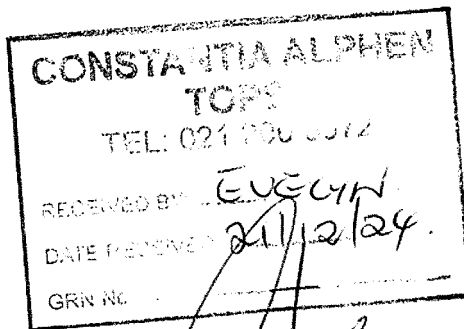 CONSTANTIA ALPHEN
TOPS
TEL: 021
RECEIVED BY EVELYN
DATE RECEIVED 21/12/24.
GRN No